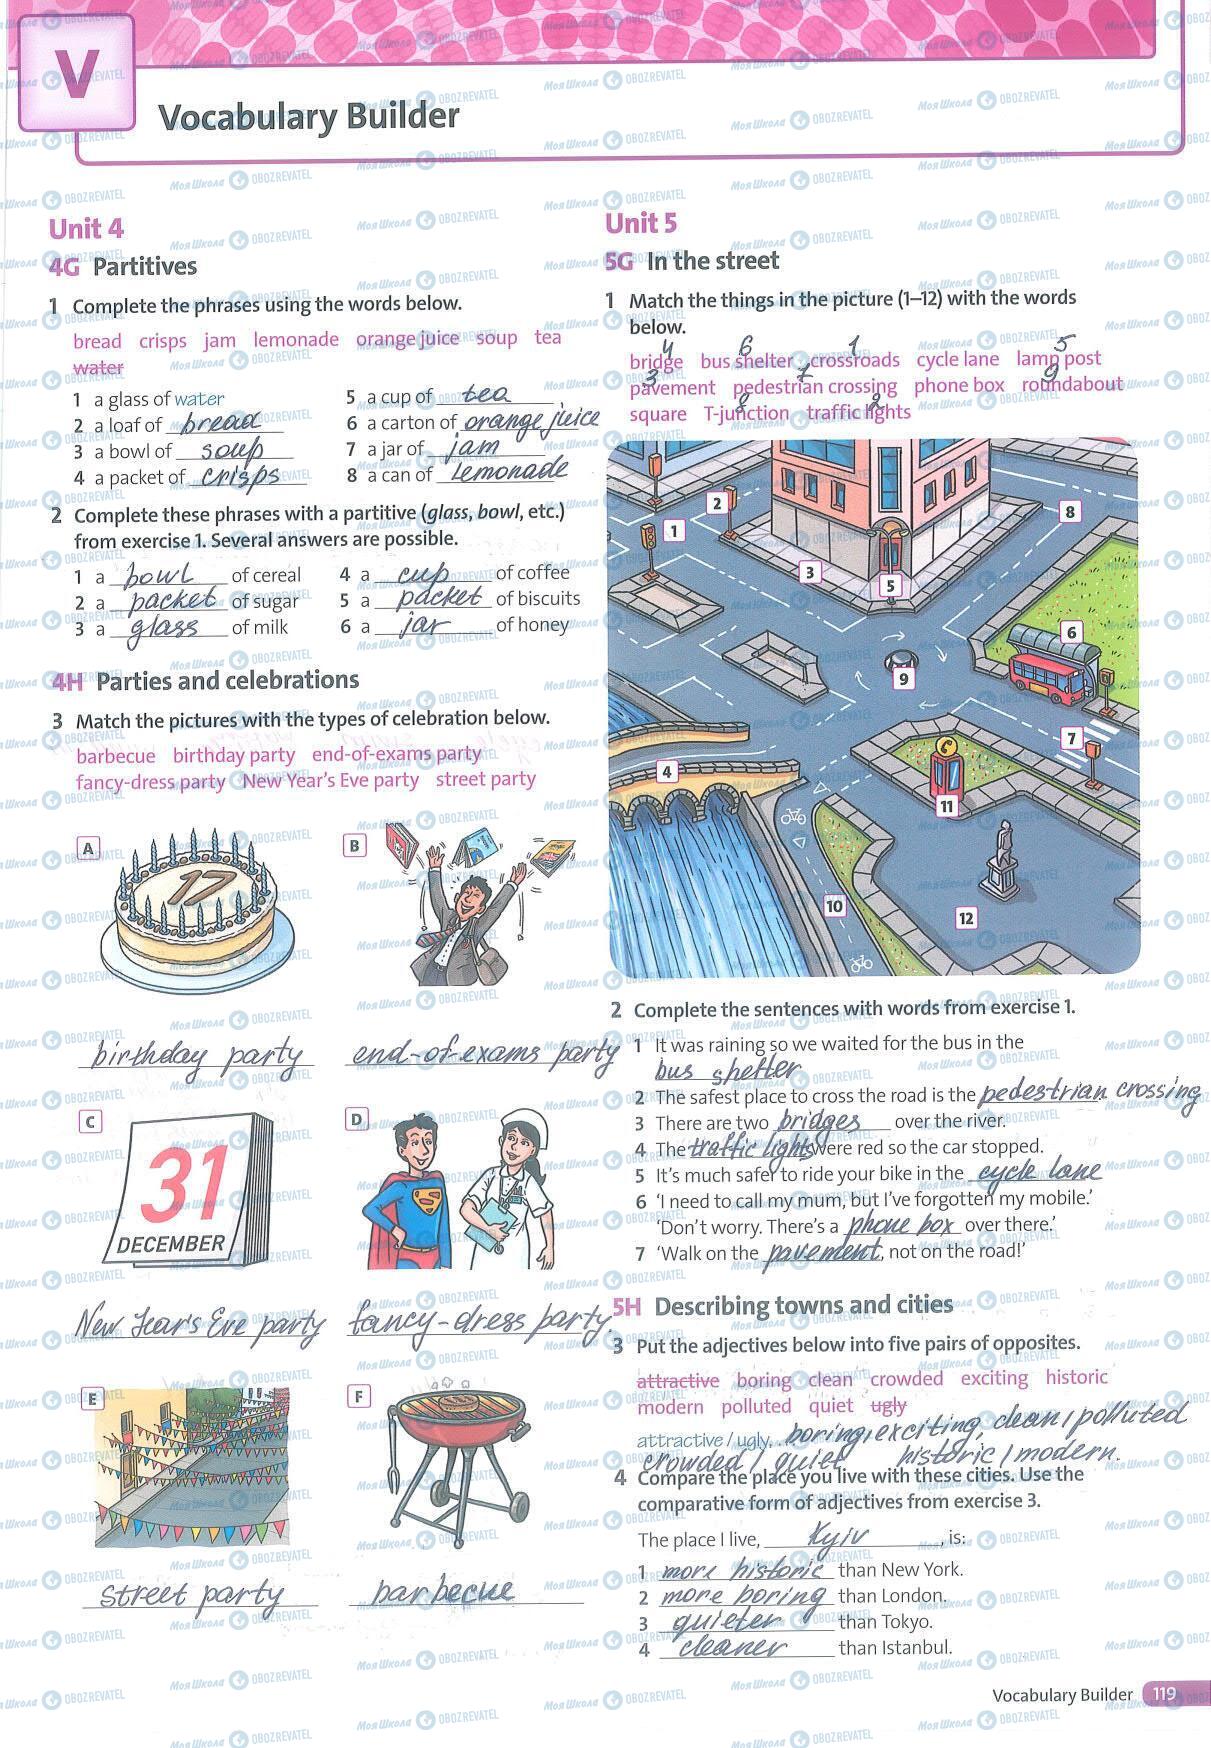 V
Vocabulary Builder
Unit 4
4G Partitives
1 Complete the phrases using the words below.
bread crisps jam lemonade orange juice soup tea
water
1 a glass of water
2 a loaf of bread
3 a bowl of soup
4 a packet of crisps
5 a cup of tea
6 a carton of orange juice
7 a jar of jam
8 a can of lemonade
2 Complete these phrases with a partitive (glass, bowl, etc.)
from exercise 1. Several answers are possible.
1 a bowl of cereal
2 a packet of sugar
3 a glass of milk
4 a cup of coffee
5 a packet of biscuits
6 a jar of honey
4H Parties and celebrations
3 Match the pictures with the types of celebration below.
barbecue birthday party end-of-exams party
fancy-dress party New Year's Eve party street party
A
17
B
birthday party
end-of-exams party
C
31
DECEMBER
D
S
New Year's Eve party
fancy-dress party.
E
F
street party
barbecue
Unit 5
5G In the street
1 Match the things in the picture (1–12) with the words
below.
4 6 1 5
bridge bus shelter crossroads cycle lane lamp post
3 7 9
pavement pedestrian crossing phone box roundabout
8 2
square T-junction traffic lights
1
2
3
5
8
6
9
7
4
11
10
12
2 Complete the sentences with words from exercise 1.
1 It was raining so we waited for the bus in the
bus shelter
2 The safest place to cross the road is the pedestrian crossing
3 There are two bridges over the river.
4 The traffic lights were red so the car stopped.
5 It's much safer to ride your bike in the cycle lane
6 'I need to call my mum, but I've forgotten my mobile.'
'Don't worry. There's a phone box over there.'
7 'Walk on the pavement, not on the road!'
5H Describing towns and cities
3 Put the adjectives below into five pairs of opposites.
attractive boring clean crowded exciting historic
modern polluted quiet ugly
attractive / ugly, boring, exciting, clean / polluted
crowded / quiet historic / modern.
4 Compare the place you live with these cities. Use the
comparative form of adjectives from exercise 3.
The place I live, Kyiv, is:
1 more historic than New York.
2 more boring than London.
3 quieter than Tokyo.
4 cleaner than Istanbul.
Vocabulary Builder 119
МояШкола OBOZREVATEL